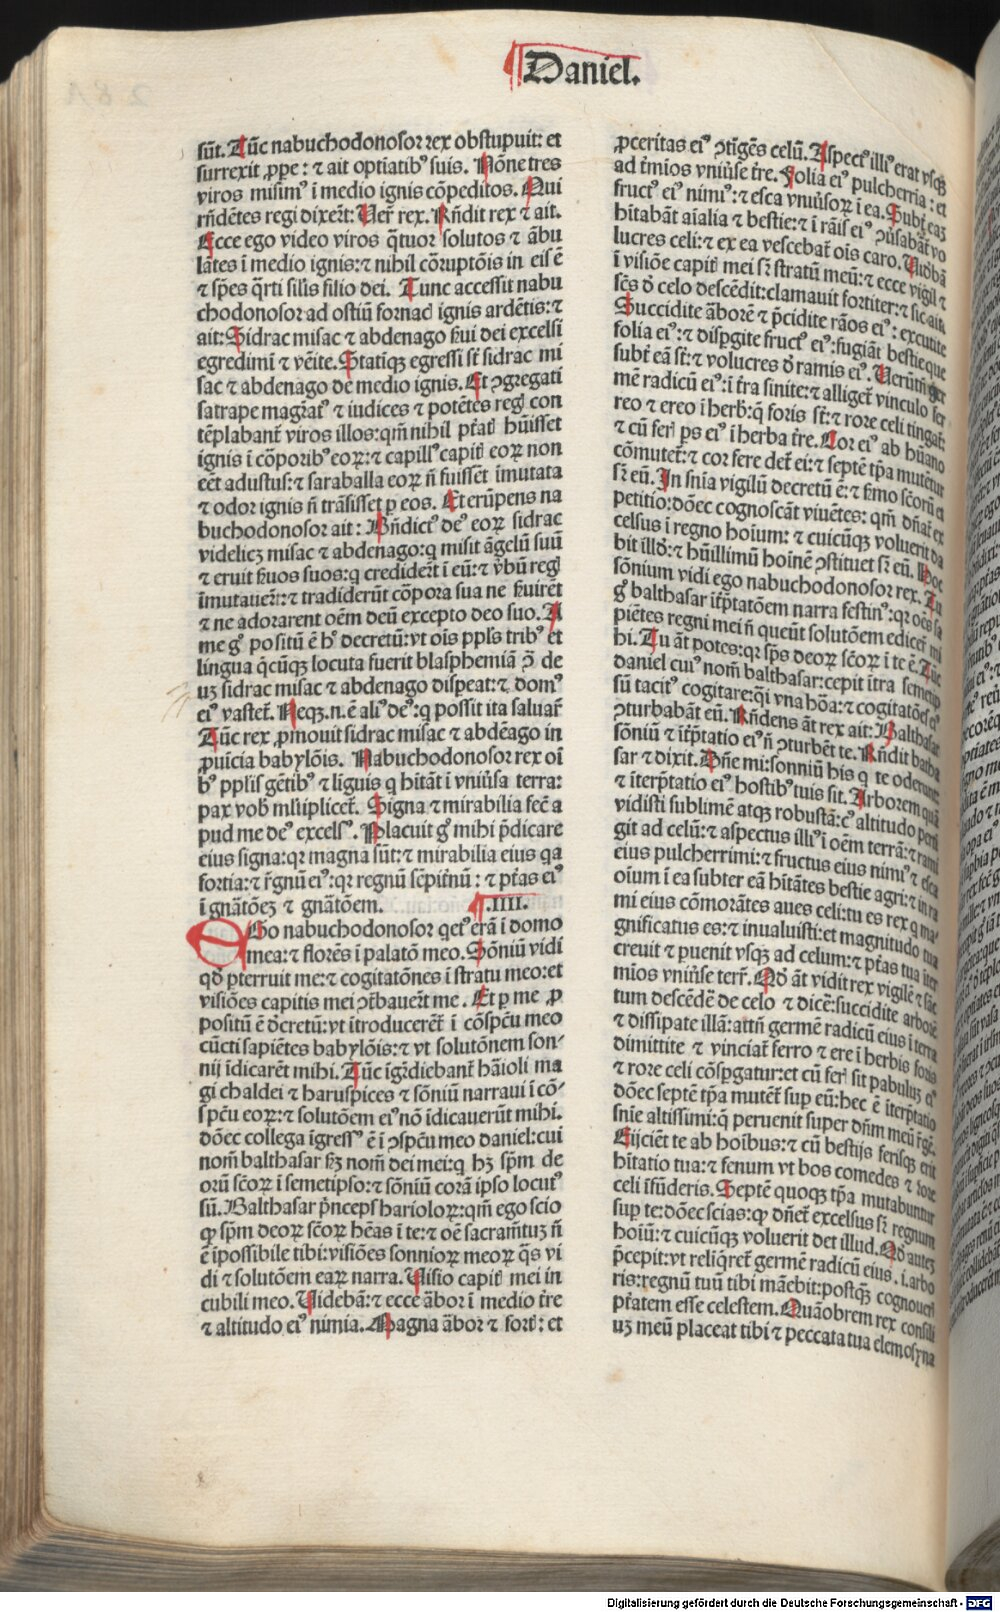 Daniel.
sũt. Tũc nabuchodonosor rex obstupuit: et
surrexit ꝓpe: ⁊ ait optiatibꝰ suis. Nõne tres
viros misimꝰ ĩ medio ignis cõpeditos. Qui
rñdẽtes regi dixer̃t: Ver̃ rex. Rñdit rex ⁊ ait.
Ecce ego video viros q̃tuor solutos ⁊ ãbu
lãtes ĩ medio ignis: ⁊ nihil cõruptõis in eis ẽ
⁊ sp̃es q̃rti sil̃is filio dei. Tunc accessit nabu
chodonosor ad ostiũ fornacẽ ignis ardẽtis: ⁊
ait: Sidrac misac ⁊ abdenago s̃ui dei excelsi
egredimĩ ⁊ vẽite. Statiqꝫ egressi st̃ sidrac mi
sac ⁊ abdenago de medio ignis. Et ꝯgregati
satrape magr̃atꝰ ⁊ iudices ⁊ potẽtes reg̃ con
tẽplabant̃ viros illos: qm̃ nihil pt̃at̃ hũisset
ignis ĩ cõporibꝰ eoꝝ: ⁊ capillꝰ capit̃ eoꝝ non
eẽt adustus: ⁊ saraballa eoꝝ ñ fuissẽt ĩmutata
⁊ odor ignis ñ trãsisset p eos. Et erũpens na
buchodonosor ait: Bñdictꝰ deꝰ eoꝝ sidrac
videlicꝫ misac ⁊ abdenago: q misit ãgelũ suũ
⁊ eruit s̃uos suos: q credider̃t ĩ eũ: ⁊ v̾bũ reg̃
ĩmutauer̃t: ⁊ tradiderũt cõpora sua ne s̃uirẽt
⁊ ne adorarent oẽm deũ excepto deo suo. A
me gͦ positũ ẽ hͦ decretũ: vt oĩs ppl̃s tribꝰ et
lingua q̃cũqꝫ locuta fuerit blasphemiã ꝯ̃ de
uꝫ sidrac misac ⁊ abdenago dispeat: ⁊ domꝰ
eiꝰ vastet̃. Neqꝫ.n.ẽ aliꝰ deꝰ: q possit ita saluar̃
Tũc rex ꝓmouit sidrac misac ⁊ abdẽago in
ꝓuĩcia babylõis. Nabuchodonosor rex oĩ
bꝰ ppl̃is gẽtibꝰ ⁊ lĩguis q hĩtãt ĩ vniũsa terra:
pax vob̃ ml̃tiplicet̃. Signa ⁊ mirabilia fec̃ a
pud me deꝰ excelsꝰ. Placuit gͦ mihi p̃dicare
eius signa: qꝛ magna sũt: ⁊ mirabilia eius qa
fortia: ⁊ r̃gnũ eiꝰ: qꝛ regnũ sẽpit̃nũ: ⁊ pt̃as eiꝰ
ĩ gnãtõeꝫ ⁊ gnãtõem.
.IIII.
Ego nabuchodonosor qetꝰ erã ĩ domo
mea: ⁊ florẽs ĩ palatõ meo. Sõniũ vidi
qd̃ pterruit me: ⁊ cogitatõnes ĩ stratu meo: et
visiões capitis mei ꝯt̃bauer̃t me. Et p me ꝓ
positũ ẽ d̃cretũ: vt ĩtroducerẽt̃ ĩ cõspc̃u meo
cũcti sapiẽtes babylõis: ⁊ vt solutõnem son
nij ĩdicarẽt mihi. Tũc ĩgr̃diebant̃ hãioli ma
gi chaldei ⁊ haruspices ⁊ sõniũ narraui ĩ cõ
spc̃u eoꝝ: ⁊ solutõem eiꝰ nõ ĩdicauerũt mihi.
dõec collega ĩgressꝰ ẽ ĩ ꝯspc̃u meo daniel: cui
nom̃ balthasar s̃ꝫ nom̃ dei mei: q hꝫ sp̃m de
orũ sc̃oꝝ ĩ semetipso: ⁊ sõniũ corã ipso locutꝰ
sũ. Balthasar p̃nceps harioloꝝ: qm̃ ego scio
ꝙ sp̃m deoꝝ sc̃oꝝ hẽas ĩ te: ⁊ oẽ sacram̃tuꝫ ñ
ẽ ĩpossibile tibi: visiões sonnioꝝ meoꝝ q̃s vi
di ⁊ solutõem eaꝝ narra. Visio capit̃ mei in
cubili meo. Videbã: ⁊ ecce ãbor ĩ medio t̃re
⁊ altitudo eiꝰ nimia. Magna ãbor ⁊ fort̃: et
ꝓceritas eiꝰ ꝯtĩgẽs celũ. Aspectꝰ illiꝰ erat vsqꝫ
ad t̃mios vniũse t̃re. Folia eiꝰ pulcherria: et
fructꝰ eiꝰ nimiꝰ: ⁊ esca vniũsoꝝ ĩ ea. Subt̃ eaꝫ
hĩtabãt aĩalia ⁊ bestie: ⁊ ĩ rãis eiꝰ ꝯũsabãt̃ vo
lucres celi: ⁊ ex ea vescebat̃ oĩs caro. Vid̃bã
ĩ visiõe capit̃ mei sr̃ stratũ meũ: ⁊ ecce vigil ⁊
sc̃s d̃ celo descẽdit: clamauit fortiter: ⁊ sic ait̃
Succidite ãborẽ ⁊ p̃cidite rãos eiꝰ: excutite
folia eiꝰ: ⁊ dispgite fructꝰ eiꝰ: fugiãt bestie que
subt̃ eã st̃: ⁊ volucres d̃ ramis eiꝰ. Verũtñ ger
mẽ radicũ eiꝰ: ĩ t̃ra sinite: ⁊ alliget̃ vinculo fer
reo ⁊ ereo ĩ herb̃: q̃ foris st̃: ⁊ rore celi tingat̃:
⁊ cũ fer̃ ps eiꝰ ĩ herba t̃re. Cor eiꝰ ab hũano
cõmutet̃: ⁊ cor fere det̃ ei: ⁊ septẽ tp̃a mutẽtur
sr̃ eũ. In sñia vigilũ decretũ ẽ: ⁊ s̃mo sc̃orũ et
petitio: dõec cognoscãt viuẽtes: qm̃ dñat̃ ex
celsus ĩ regno hoĩum: ⁊ cuicũqꝫ voluerit da
bit illd̃: ⁊ hũillimũ hoĩnẽ ꝯstituet sr̃ eũ. Hoc
sõnium vidi ego nabuchodonosor rex. Tu
gͦ balthasar ĩtp̃tatõem narra festinꝰ: qꝛ oẽs sa
piẽtes regni mei ñ queũt solutõem edicer̃ mi
hi. Tu ãt potes: qꝛ sp̃s deoꝝ sc̃oꝝ ĩ te ẽ. Tũc
daniel cuiꝰ nom̃ balthasar: cepit ĩtra semetip
sũ tacitꝰ cogitare: q̃si vna hõa: ⁊ cogitatões eiꝰ
ꝯturbabãt eũ. Rñdens ãt rex ait: Balthasar
sõniũ ⁊ ĩtp̃tatio eiꝰ ñ ꝯturbẽt te. Rñdit baltha
sar ⁊ dixit. Dñe mi: sonniũ his q te oderunt:
⁊ ĩterp̃tatio eiꝰ hostibꝰ tuis sit. Arborem quã
vidisti sublimẽ atqꝫ robustã: cꝰ altitudo perti
git ad celũ: ⁊ aspectus illiꝰ ĩ oẽm terrã: ⁊ rami
eius pulcherrimi: ⁊ fructus eius nimiꝰ ⁊ esca
oĩum ĩ ea subter eã hĩtãtes bestie agri: ⁊ in ra
mi eius cõmorãtes aues celi: tu es rex q ma
gnificatus es: ⁊ inualuisti: et magnitudo tua
creuit ⁊ puenit vsqꝫ ad celum: ⁊ pt̃as tua ĩter
mĩos vniũse terr̃. Qd̃ ãt vidit rex vigilẽ ⁊ sãc
tum descẽdẽ de celo ⁊ dicẽ: succidite arborẽ
⁊ dissipate illã: attñ germẽ radicũ eius ĩ terra
dimittite ⁊ vinciat̃ ferro ⁊ ere ĩ herbis foris
⁊ rore celi cõspgatur: et cũ fer̃ sit pabuluꝫ eiꝰ
dõec septẽ tp̃a mutẽt̃ sup eũ: hec ẽ ĩterp̃tatio
sñie altissimi: q̃ peruenit super dñm meũ r̃gẽ.
Eijciẽt te ab hoĩbus: ⁊ cũ bestijs ferisqꝫ erit
hĩtatio tua: ⁊ fenum vt bos comedes ⁊ rore
celi ĩfũderis. Septẽ quoqꝫ tp̃a mutabuntur
sup te: dõec scias: ꝙ dñet̃ excelsus sr̃ regnum
hoĩũ: ⁊ cuicũqꝫ voluerit det illud. Qd̃ auteꝫ
p̃cepit: vt reliq̃ret̃ germẽ radicũ eius .i. arbo
ris: regnũ tuũ tibi mãebit: postq̃ꝫ cognouer̃
pt̃atem esse celestem. Quãobrem rex consili
uꝫ meũ placeat tibi ⁊ peccata tua elemosyna
Digitalisierung gefördert durch die Deutsche Forschungsgemeinschaft - DFG